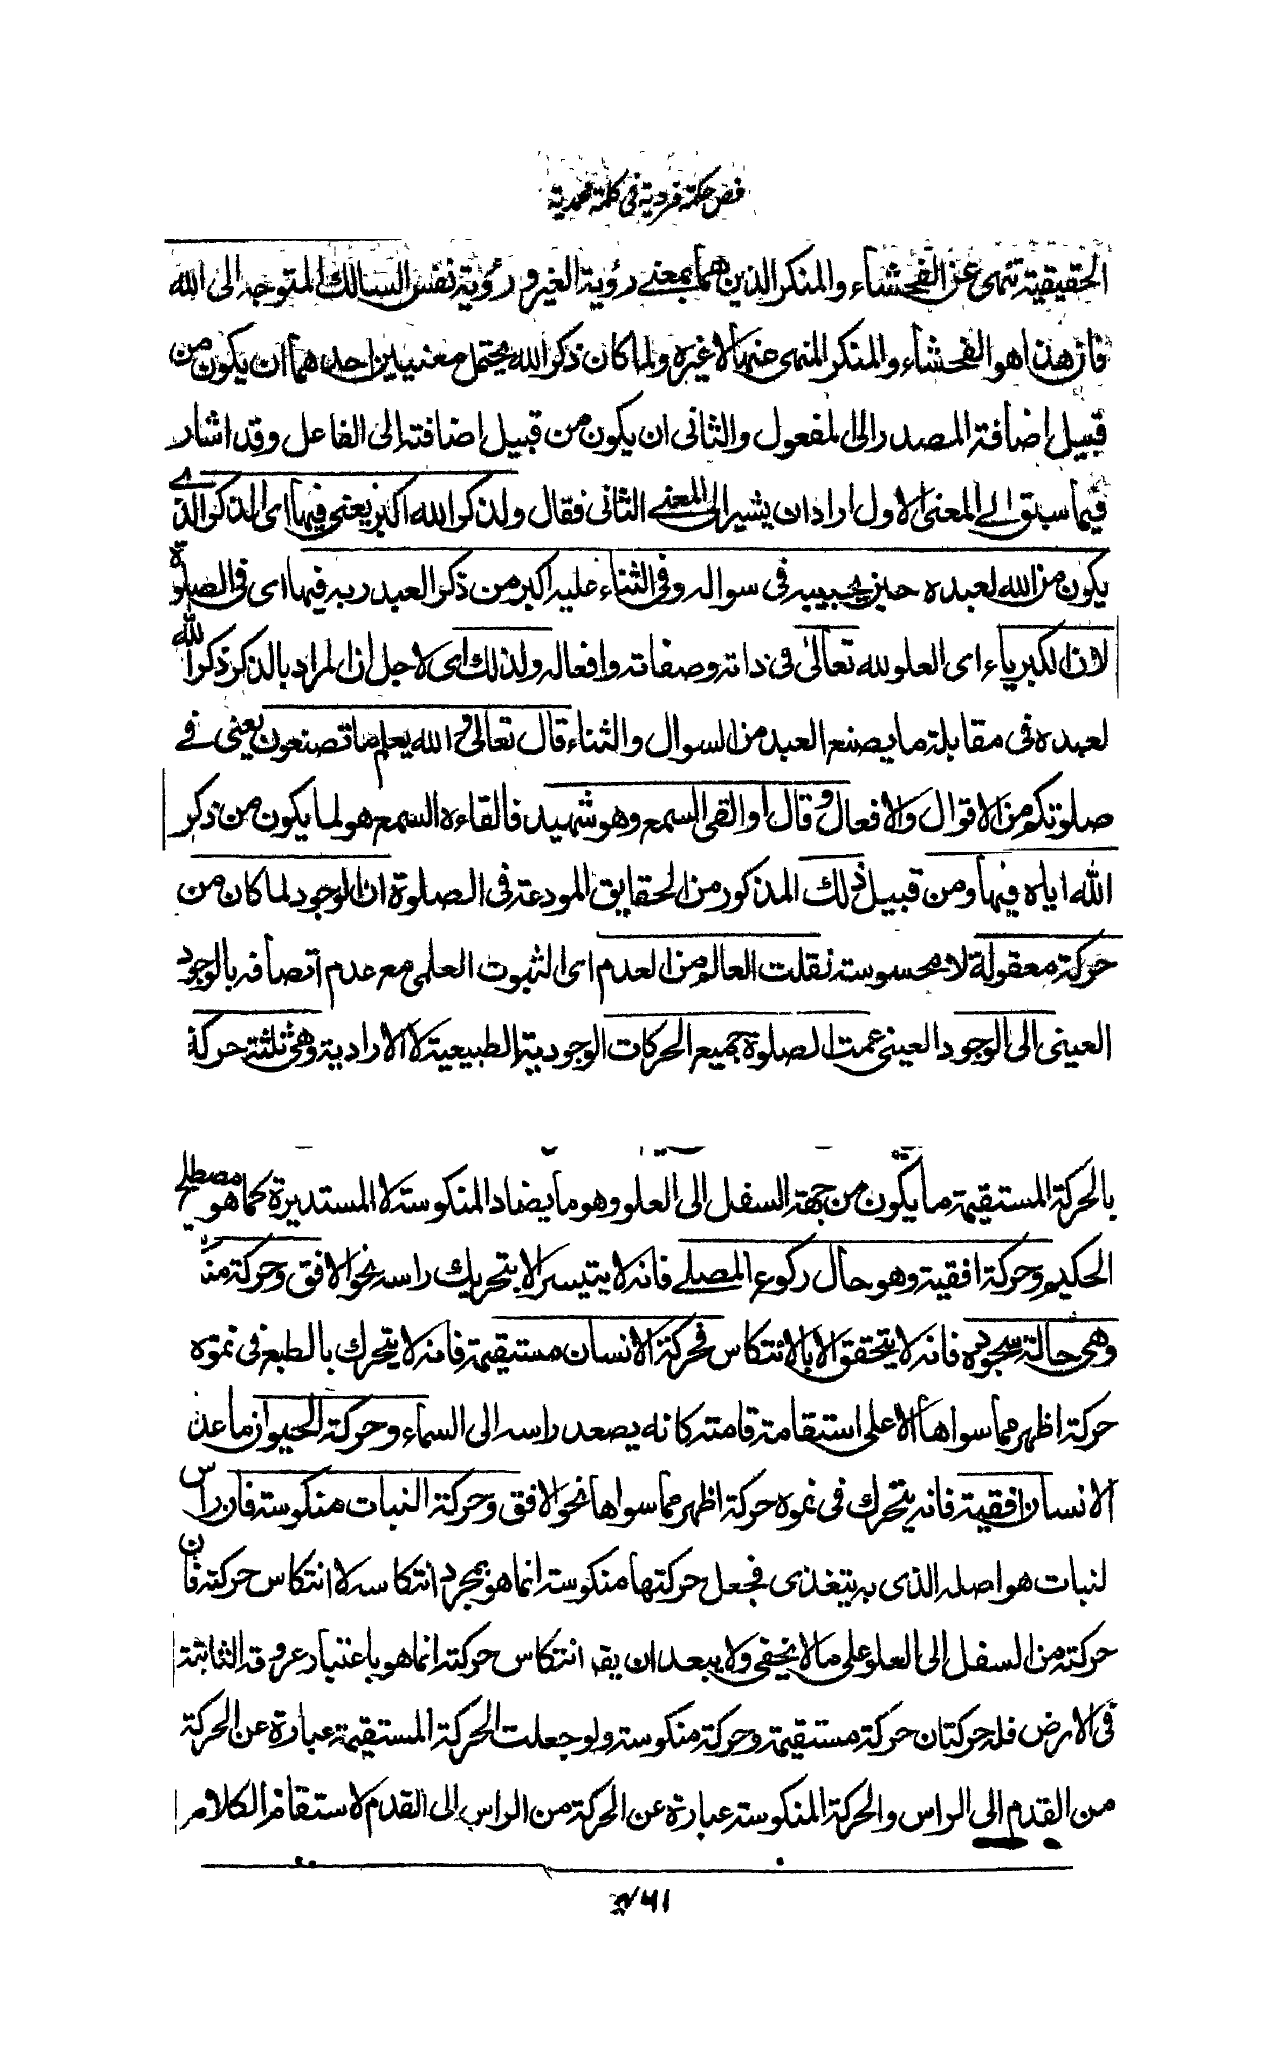 فص حكمة فردية في كلمة محمدية
الحقيقية تنهى عن الفحشاء والمنكر الذين هما بمعنے رؤية الغير و رؤية نفس السالك المتوجه الى الله
فان هذا هو الفحشاء والمنكر المنهى عنهما لا غيره ولما كان ذكر الله يحتمل معنيين احدهما ان يكون من
قبيل اضافة المصدر الى المفعول والثانى ان يكون من قبيل اضافته الى الفاعل وقد اشار
فيما سبق الے المعنى الاول اراد ان يشير الى المعنے الثانى فقال ولذكر الله اكبر يعنى فيها اى الذكر الذے
يكون من الله لعبده حين يجيبه فى سواله وفى الثناء عليه اكبر من ذكر العبد ربه فيها اى فى الصلوة
لان الكبرياء اى العلو لله تعالى فى ذاته وصفاته وافعاله ولذلك اى لاجل ان المراد بالذكر ذكر الله
لعبده فى مقابلة ما يصنع العبد من السوال والثناء قال تعالى و الله يعلم ما تصنعون يعنى فے
صلوتكم من الاقوال والافعال و قال او القى السمع وهو شهيد فالقاءه السمع هو لما يكون من ذكر
الله اياه فيها ومن قبيل ذلك المذكور من الحقايق المودعة فى الصلوة ان الوجود لما كان من
حركة معقولة لا محسوسة نقلت العالم من العدم اى الثبوت العلمى مع عدم اتصافه بالوجود
العينى الى الوجود العينى عمت الصلوة جميع الحركات الوجودية الطبيعية لا الارادية وهى ثلثة حركة
بالحركة المستقيمة ما يكون من جهة السفل الى العلو وهو ما يضاد المنكوسة لا المستديرة كما هو مصطلح
الحكيم و حركة افقية وهو حال ركوع المصلے فانه لا يتيسر الا بتحريك راسه نحو الافق وحركة من
وهى حالة سجوده فانه لا يتحقق الا بالانتكاس فحركة الانسان مستقيمة فانه لا يتحرك بالطبع فى نموه
حركة اظهر مما سواها الا على استقامة قامته كانه يصعد راسه الى السماء وحركة الحيوان ما عدا
الانسان افقية فانه يتحرك فى نموه حركة اظهر مما سواها نحو الافق وحركة النبات منكوسة فان راس
لنبات هو اصله الذى به يتغذى فجعل حركتها منكوسة انما هو بمجرد انتكاسه لا انتكاس حركته فان
حركته من السفل الى العلو على ما لا يخفى ولا يبعد ان يقـ انتكاس حركته انما هو باعتبار عروقه الثابتة
فى الارض فله حركتان حركة مستقيمة وحركة منكوسة ولو جعلت الحركة المستقيمة عبارة عن الحركة
من القدم الى الراس والحركة المنكوسة عبارة عن الحركة من الراس الى القدم لاستقام الكلام